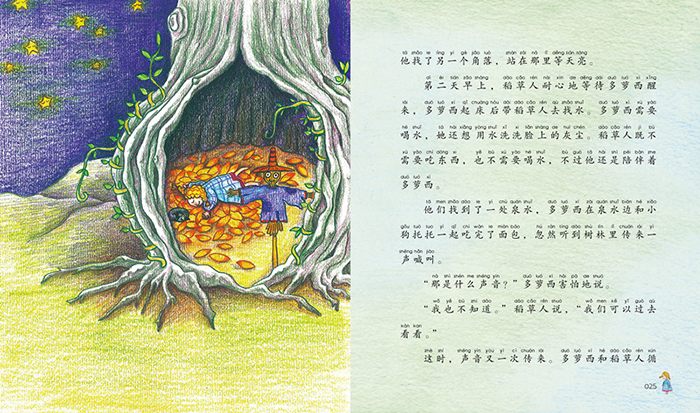 他找了另一个角落，站在那里等天亮。
第二天早上，稻草人耐心地等待多萝西醒
来，多萝西起床后带稻草人去找水。多萝西需要
喝水，她还想用水洗洗脸上的灰尘。稻草人既不
需要吃东西，也不需要喝水，不过他还是陪伴着
多萝西。
他们找到了一处泉水，多萝西在泉水边和小
狗托托一起吃完了面包，忽然听到树林里传来一
声喊叫。
“那是什么声音？”多萝西害怕地说。
“我也不知道。”稻草人说，“我们可以过去
看看。”
这时，声音又一次传来。多萝西和稻草人循
025